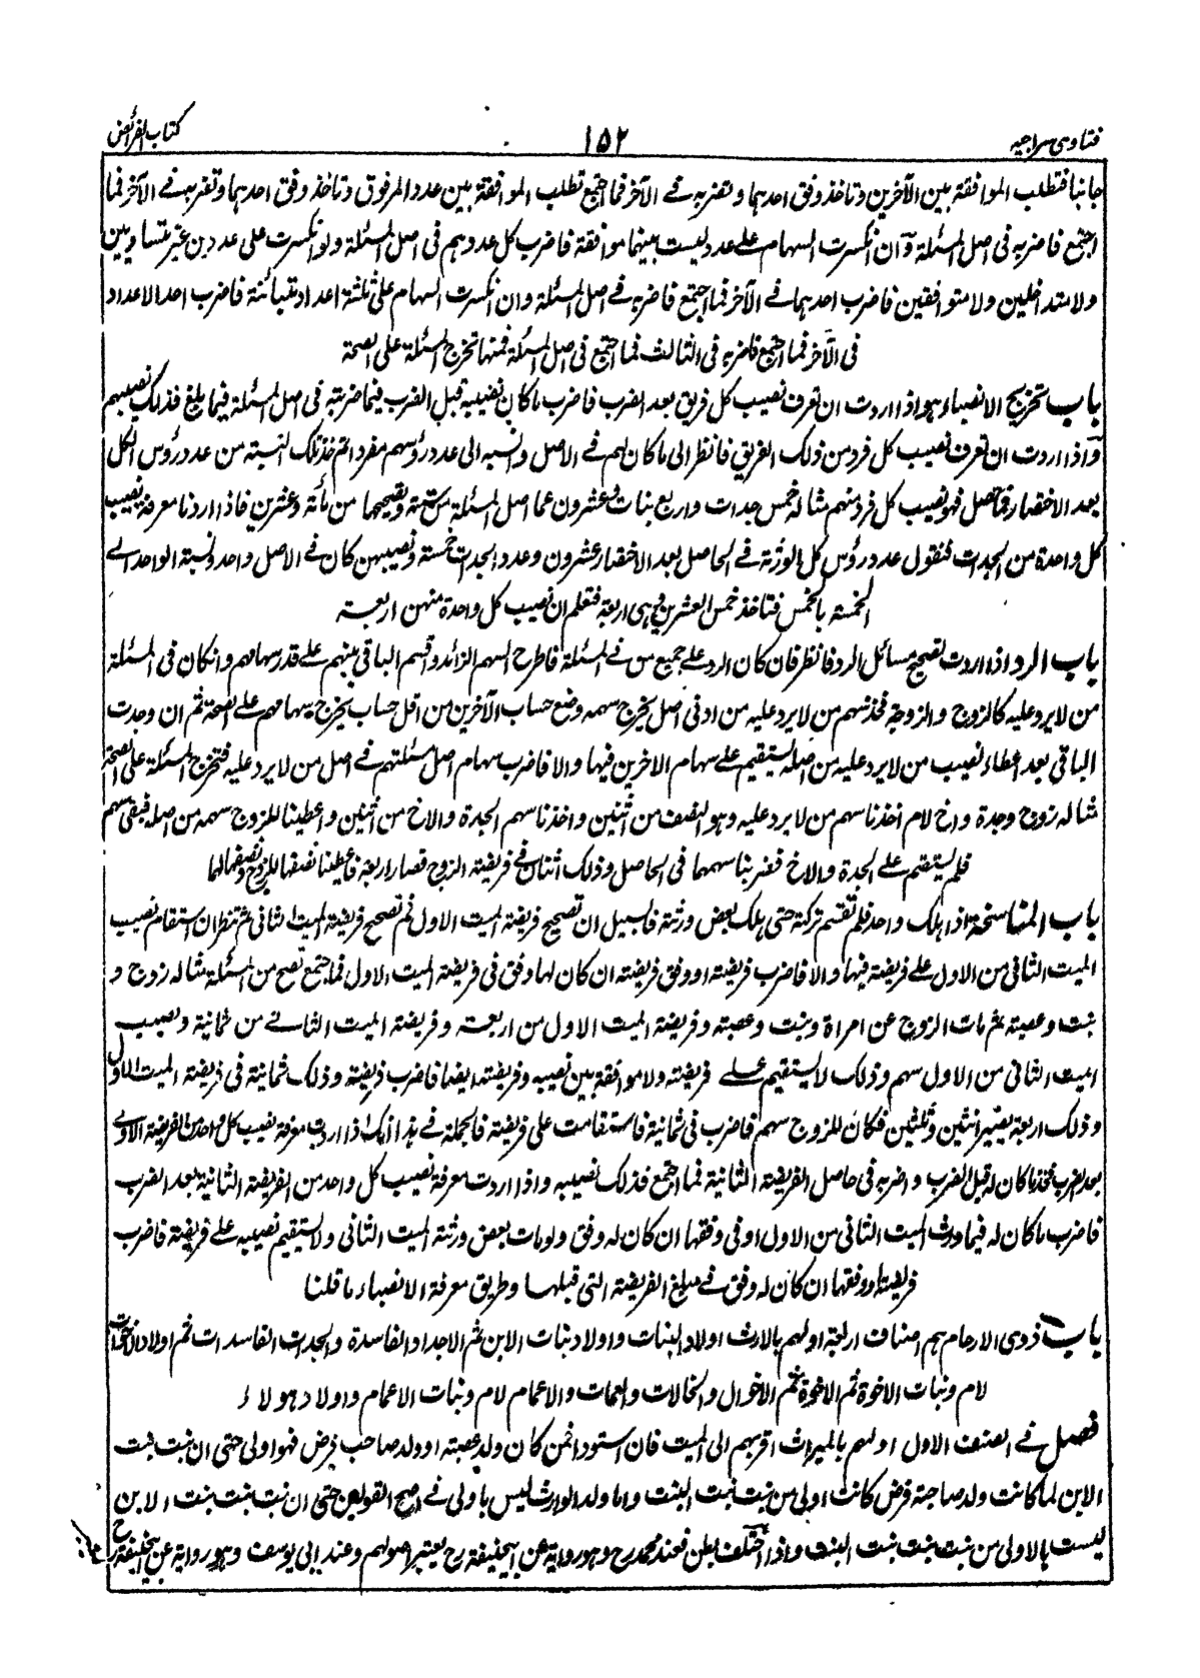 فتاوى سراجيه
١٥٢
كتاب الفرائض
جانبا فتطلب الموافقة بين الآخرين وتاخذ وفق احدهما وتضربه فى الآخر فما اجتمع تطلب الموافقة بين عدد المرفوق وتاخذ وفق احدهما وتضربه فى الآخر فما
اجتمع فاضربه فى اصل المسئلة وان انكسرت السهام على عدد ليست بينهما موافقة فاضرب كل عددهم فى اصل المسئلة ولو انكسرت على عددين غير متساويين
ولا متداخلين ولا متوافقين فاضرب احدهما فى الآخر فما اجتمع فاضربه فى اصل المسئلة وان انكسرت السهام على ثلثة اعداد متبائنة فاضرب احد الاعداد
فى الآخر فما اجتمع فاضربه فى الثالث فما اجتمع فى اصل المسئلة فمنها تخرج المسئلة على الصحة
باب تخريج الانصباء هو اذا اردت ان تعرف نصيب كل فريق بعد الضرب فاضرب ما كان نصيبه قبل الضرب فيما ضربته فى اصل المسئلة فيما بلغ فذلك نصيبهم
واذا اردت ان تعرف نصيب كل فرد من ذلك الفريق فانظر الى ما كان لهم فى الاصل وانسبه الى عدد رؤسهم مفردا ثم خذ تلك النسبة من عدد رؤس الكل
بعد الاختصار فما حصل فهو نصيب كل فرد منهم مثاله خمس جدات واربع بنات وعشرون عما اصل المسئلة من ستة وتصحيحها من مأئة وعشرين فاذا اردنا معرفة نصيب
كل واحدة من الجدات فنقول عدد رؤس كل الورثة فى الحاصل بعد الاختصار عشرون وعدد الجدات خمسة ونصيبهن كان فى الاصل واحد ونسبة الواحد الى
الخمسة بالخمس فتاخذ خمس العشرين وهى اربعة فتعلم ان نصيب كل واحدة منهن اربعة
باب الرد اذا اردت تصحيح مسائل الرد فانظر فان كان الرد على جميع من فى المسئلة فاطرح السهم الزائد واقسم الباقى بينهم على قدر سهامهم وانكان فى المسئلة
من لا يرد عليه كالزوج والزوجة فخذ سهم من لا يرد عليه من ادنى اصل يخرج سهمه وضع حساب الآخرين من اقل حساب يخرج سهامهم على الصحة ثم ان وجدت
الباقى بعد اعطاء نصيب من لا يرد عليه من اصله يستقيم على سهام الاخرين فيها والا فاضرب سهام اصل مسئلتهم فى اصل من لا يرد عليه فتخرج المسئلة على الصحة
مثاله زوج وجدة واخ لام اخذنا سهم من لا يرد عليه وهو النصف من اثنين واخذنا سهم الجدة والاخ من اثنين واعطينا للزوج سهمه من اصله فبقى سهم
فلم يستقم على الجدة والاخ فضربنا سهمها فى الحاصل وذلك اثنان فى فريضة الزوج فصار اربعة فاعطينا نصفها للزوج ونصفها لهما
باب المناسخة اذا هلك واحد فلم تقسم تركته حتى هلك بعض ورثته فالسبيل ان تصحح فريضة الميت الاول ثم تصحح فريضة الميت الثانى ثم تنظر ان استقام نصيب
الميت الثانى من الاول على فريضته فيها والا فاضرب فريضته او وفق فريضته ان كان لها وفق فى فريضة الميت الاول فما اجتمع تصح من المسئلة مثاله زوج و
بنت وعصبته ثم مات الزوج عن امراة وبنت وعصبته وفريضة الميت الاول من اربعة وفريضة الميت الثانى من ثمانية ونصيب
الميت الثانى من الاول سهم وذلك لا يستقيم على فريضته ولا موافقة بين نصيبه وفريضته ايضا فاضرب فريضته وذلك ثمانية فى فريضة الميت الاول
وذلك اربعة يصير اثنين وثلثين فكان للزوج سهم فاضرب فى ثمانية فاستقامت على فريضته فالجملة فى هذا انك اذا اردت معرفة نصيب كل واحد من الفريضة الاولى
بعد الضرب فخذ ما كان له قبل الضرب واضربه فى حاصل الفريضة الثانية فما اجتمع فذلك نصيبه واذا اردت معرفة نصيب كل واحد من الفريضة الثانية بعد الضرب
فاضرب ما كان له فيما ورث الميت الثانى من الاول او فى وفقها ان كان له وفق ولو مات بعض ورثة الميت الثانى ولا يستقيم نصيبه على فريضته فاضرب
فريضته او وفقها ان كان له وفق فى مبلغ الفريضة التى قبلها وطريق معرفة الانصباء ما قلنا
باب ذوى الارحام هم اصناف اربعة اولهم بالارث اولاد البنات واولاد بنات الابن ثم الاجداد الفاسدة والجدات الفاسدات ثم اولاد الاخوات
لام وبنات الاخوة ثم الاخوة ثم الاخوال والخالات والعمات والاعمام لام وبنات الاعمام واولاد هولاء
فصل فى الصنف الاول اولهم بالميراث اقربهم الى الميت فان استووا فمن كان ولد عصبته او ولد صاحب فرض فهو اولى حتى ان بنت بنت
الابن لما كانت ولد صاحبة فرض كانت اولى من بنت بنت البنت واما ولد الوارث ليس باولى فى اصح القولين حتى ان بنت بنت بنت الابن
ليست بالاولى من بنت بنت بنت البنت واذا اختلف بطن فعند محمد رح وهو رواية عن ابيحنيفة رح يعتبر اصولهم وعند ابى يوسف وهو رواية عن ابيحنيفة رح